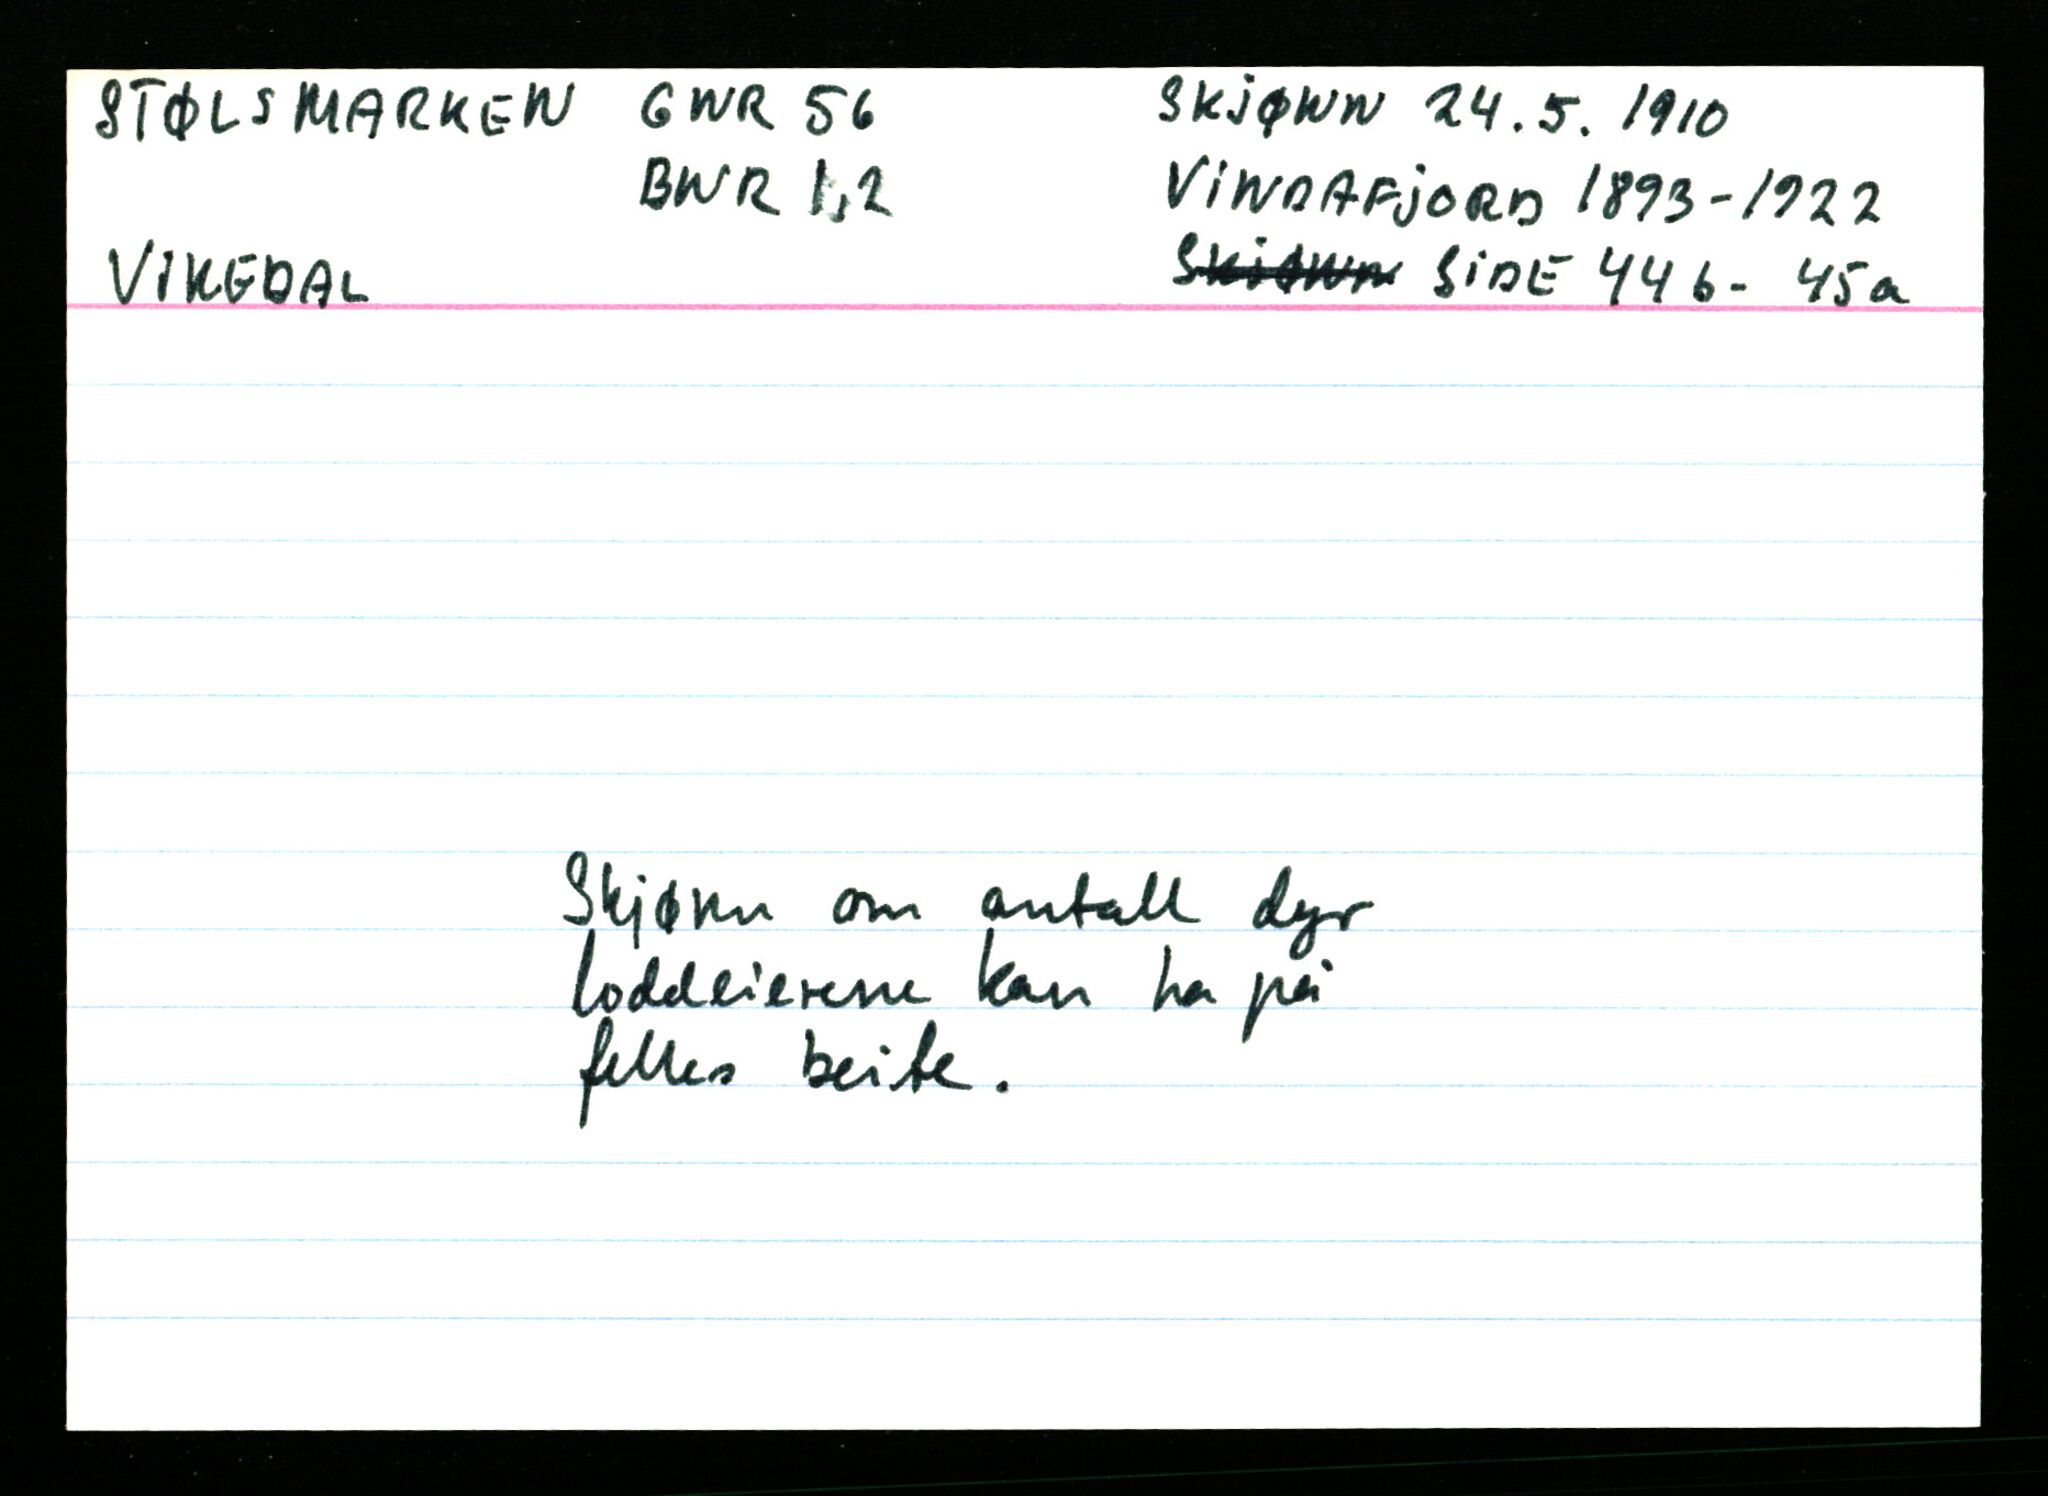 STØLSMARKEN GNR 56 SKJØNN 24.5.1910
BNR 1,2 VINDAFJORD 1893-1922
VIKEDAL SKJØNN SIDE 44b - 45a
Skjønn om antall dyr
loddeierene kan ha på
felles beite.